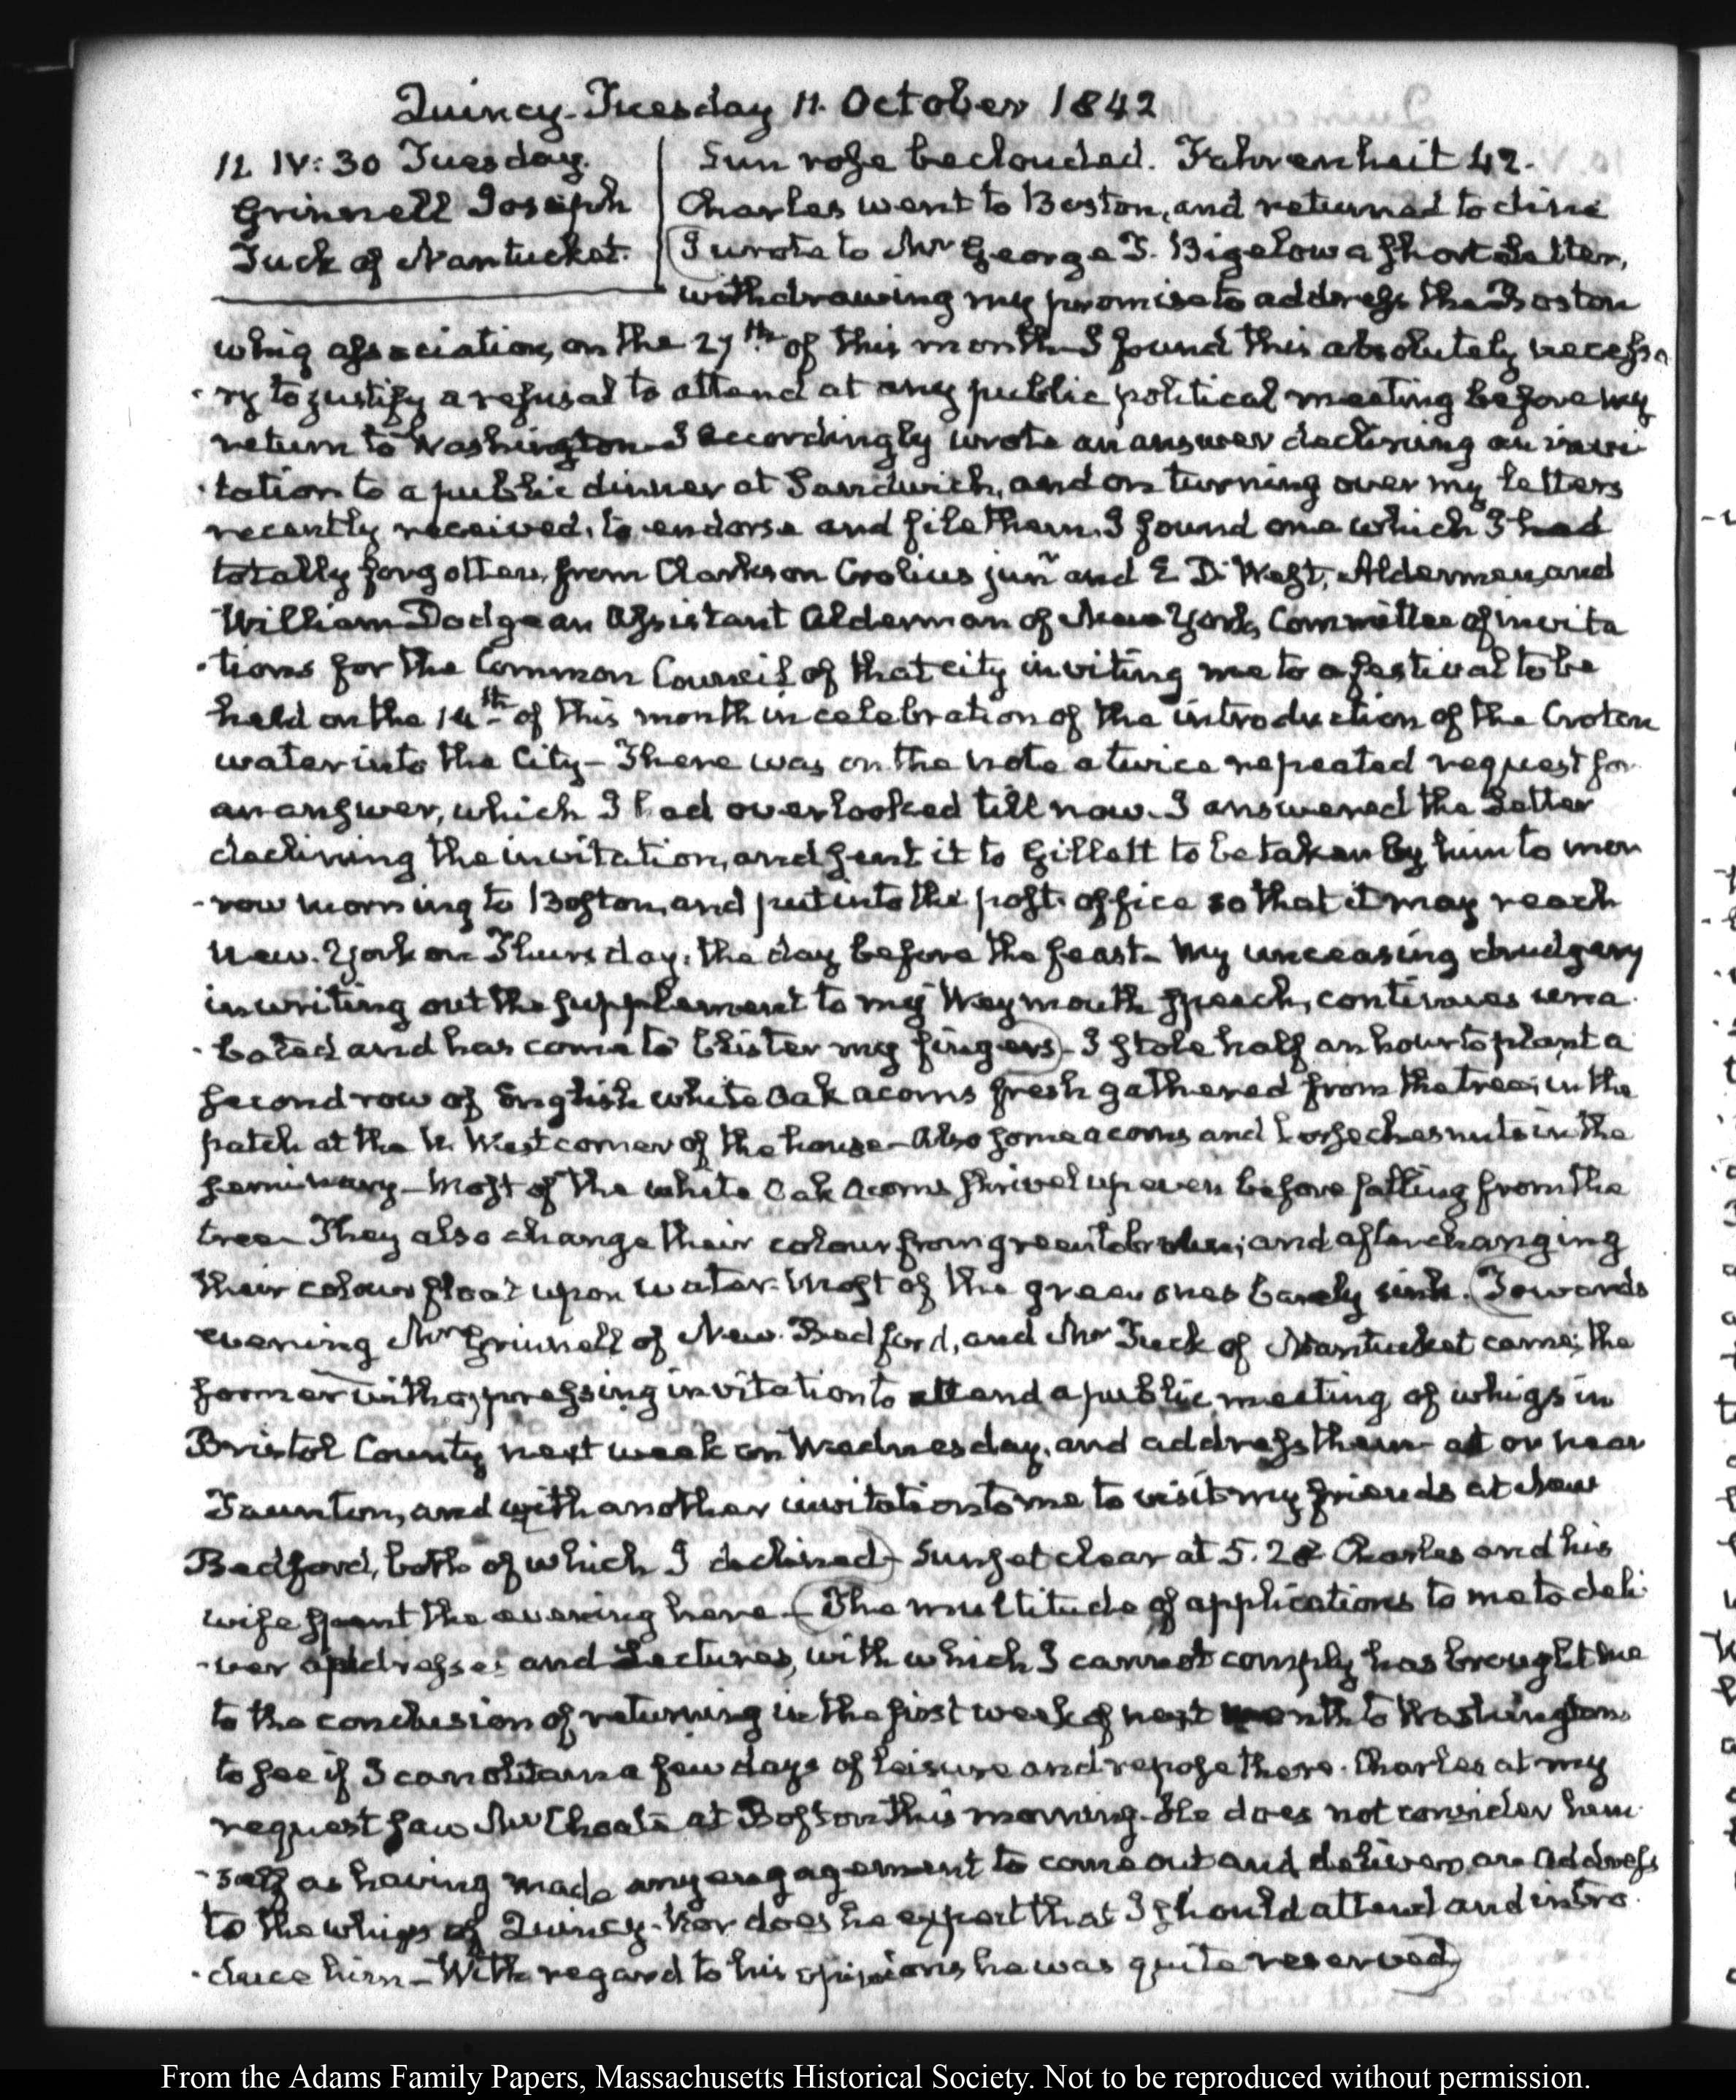 Quincy. Tuesday 11. October 1842
11. IV: 30 Tuesday.
Grinnell Joseph
Tuck of Nantucket.
Sun rose beclouded. Fahrenheit 42.
Charles went to Boston, and returned to dine
I wrote to Mr George T. Bigelow a short Letter,
withdrawing my promise to address the Boston
whig association, on the 27th of this month. I found this absolutely necessa
-ry to justify a refusal to attend at any public political meeting before my
return to Washington. I accordingly wrote an answer declining an invi
-tation to a public dinner at Sandwich, and on turning over my letters
recently received, to endorse and file them, I found one which I had
totally forgotten, from Clarkson Crolius junr and E D. West, Aldermen, and
William Dodge an Assistant Alderman of New York, Committee of invita
-tions for the Common Council of that city inviting me to a festival to be
held on the 14th of this month in celebration of the introduction of the Croton
water into the City - There was on the note a twice repeated request for
an answer, which I had overlooked till now. I answered the Letter
declining the invitation, and sent it to Gillett to be taken by him to mor
-row morning to Boston, and put into the post-office so that it may reach
New-York on Thursday, the day before the feast. My unceasing drudgery
in writing out the supplement to my Weymouth speech, continues una
-bated and has come to blister my fingers) - I stole half an hour to plant a
second row of English white Oak acorns fresh gathered from the tree; in the
patch at the N. West corner of the house - Also some acorns and horsechesnuts in the
seminary - Most of the white Oak Acorns shrivel up even before falling from the
tree. They also change their colour from green to brown; and after changing
their colour float upon water. Most of the green ones barely sink. (Towards
evening Mr Grinnell of New-Bedford, and Mr Tuck of Nantucket came; the
former with a pressing invitation to attend a public meeting of whigs in
Bristol County next week on Wednesday, and address them at or near
Taunton, and with another invitation to me to visit my friends at New
Bedford, both of which I declined) - Sun set clear at 5. 28 Charles and his
wife spent the evening here - (The multitude of applications to me to deli
-ver addresses and Lectures, with which I cannot comply has brought me
to the conclusion of returning in the first week of next month to Washington
to see if I can obtain a few days of leisure and repose there. Charles at my
request saw Mr Choate at Boston this morning. He does not consider him
-self as having made any engagement to come out and deliver an Address
to the whigs of Quincy. Nor does he expect that I should attend and intro
-duce him - With regard to his opinions he was quite reserved)
From the Adams Family Papers, Massachusetts Historical Society. Not to be reproduced without permission.